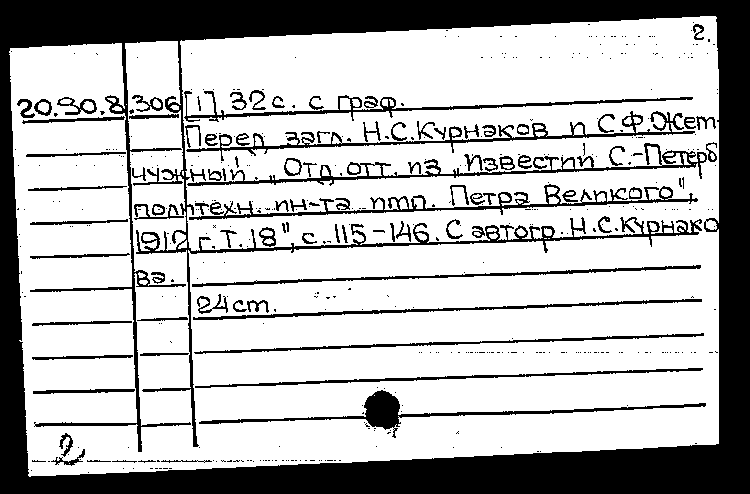 2.
20.90.8.306 [1], 32 с. с граф.
Перед загл. Н.С.Курнаков и С.Ф.Жем-
чужный. „Отд. отт. из „Известий С.-Петерб
политехн. ин-та имп. Петра Великого",
1912 г. Т. 18", с. 115-146. С автогр. Н.С.Курнако
ва.
24 см.
2